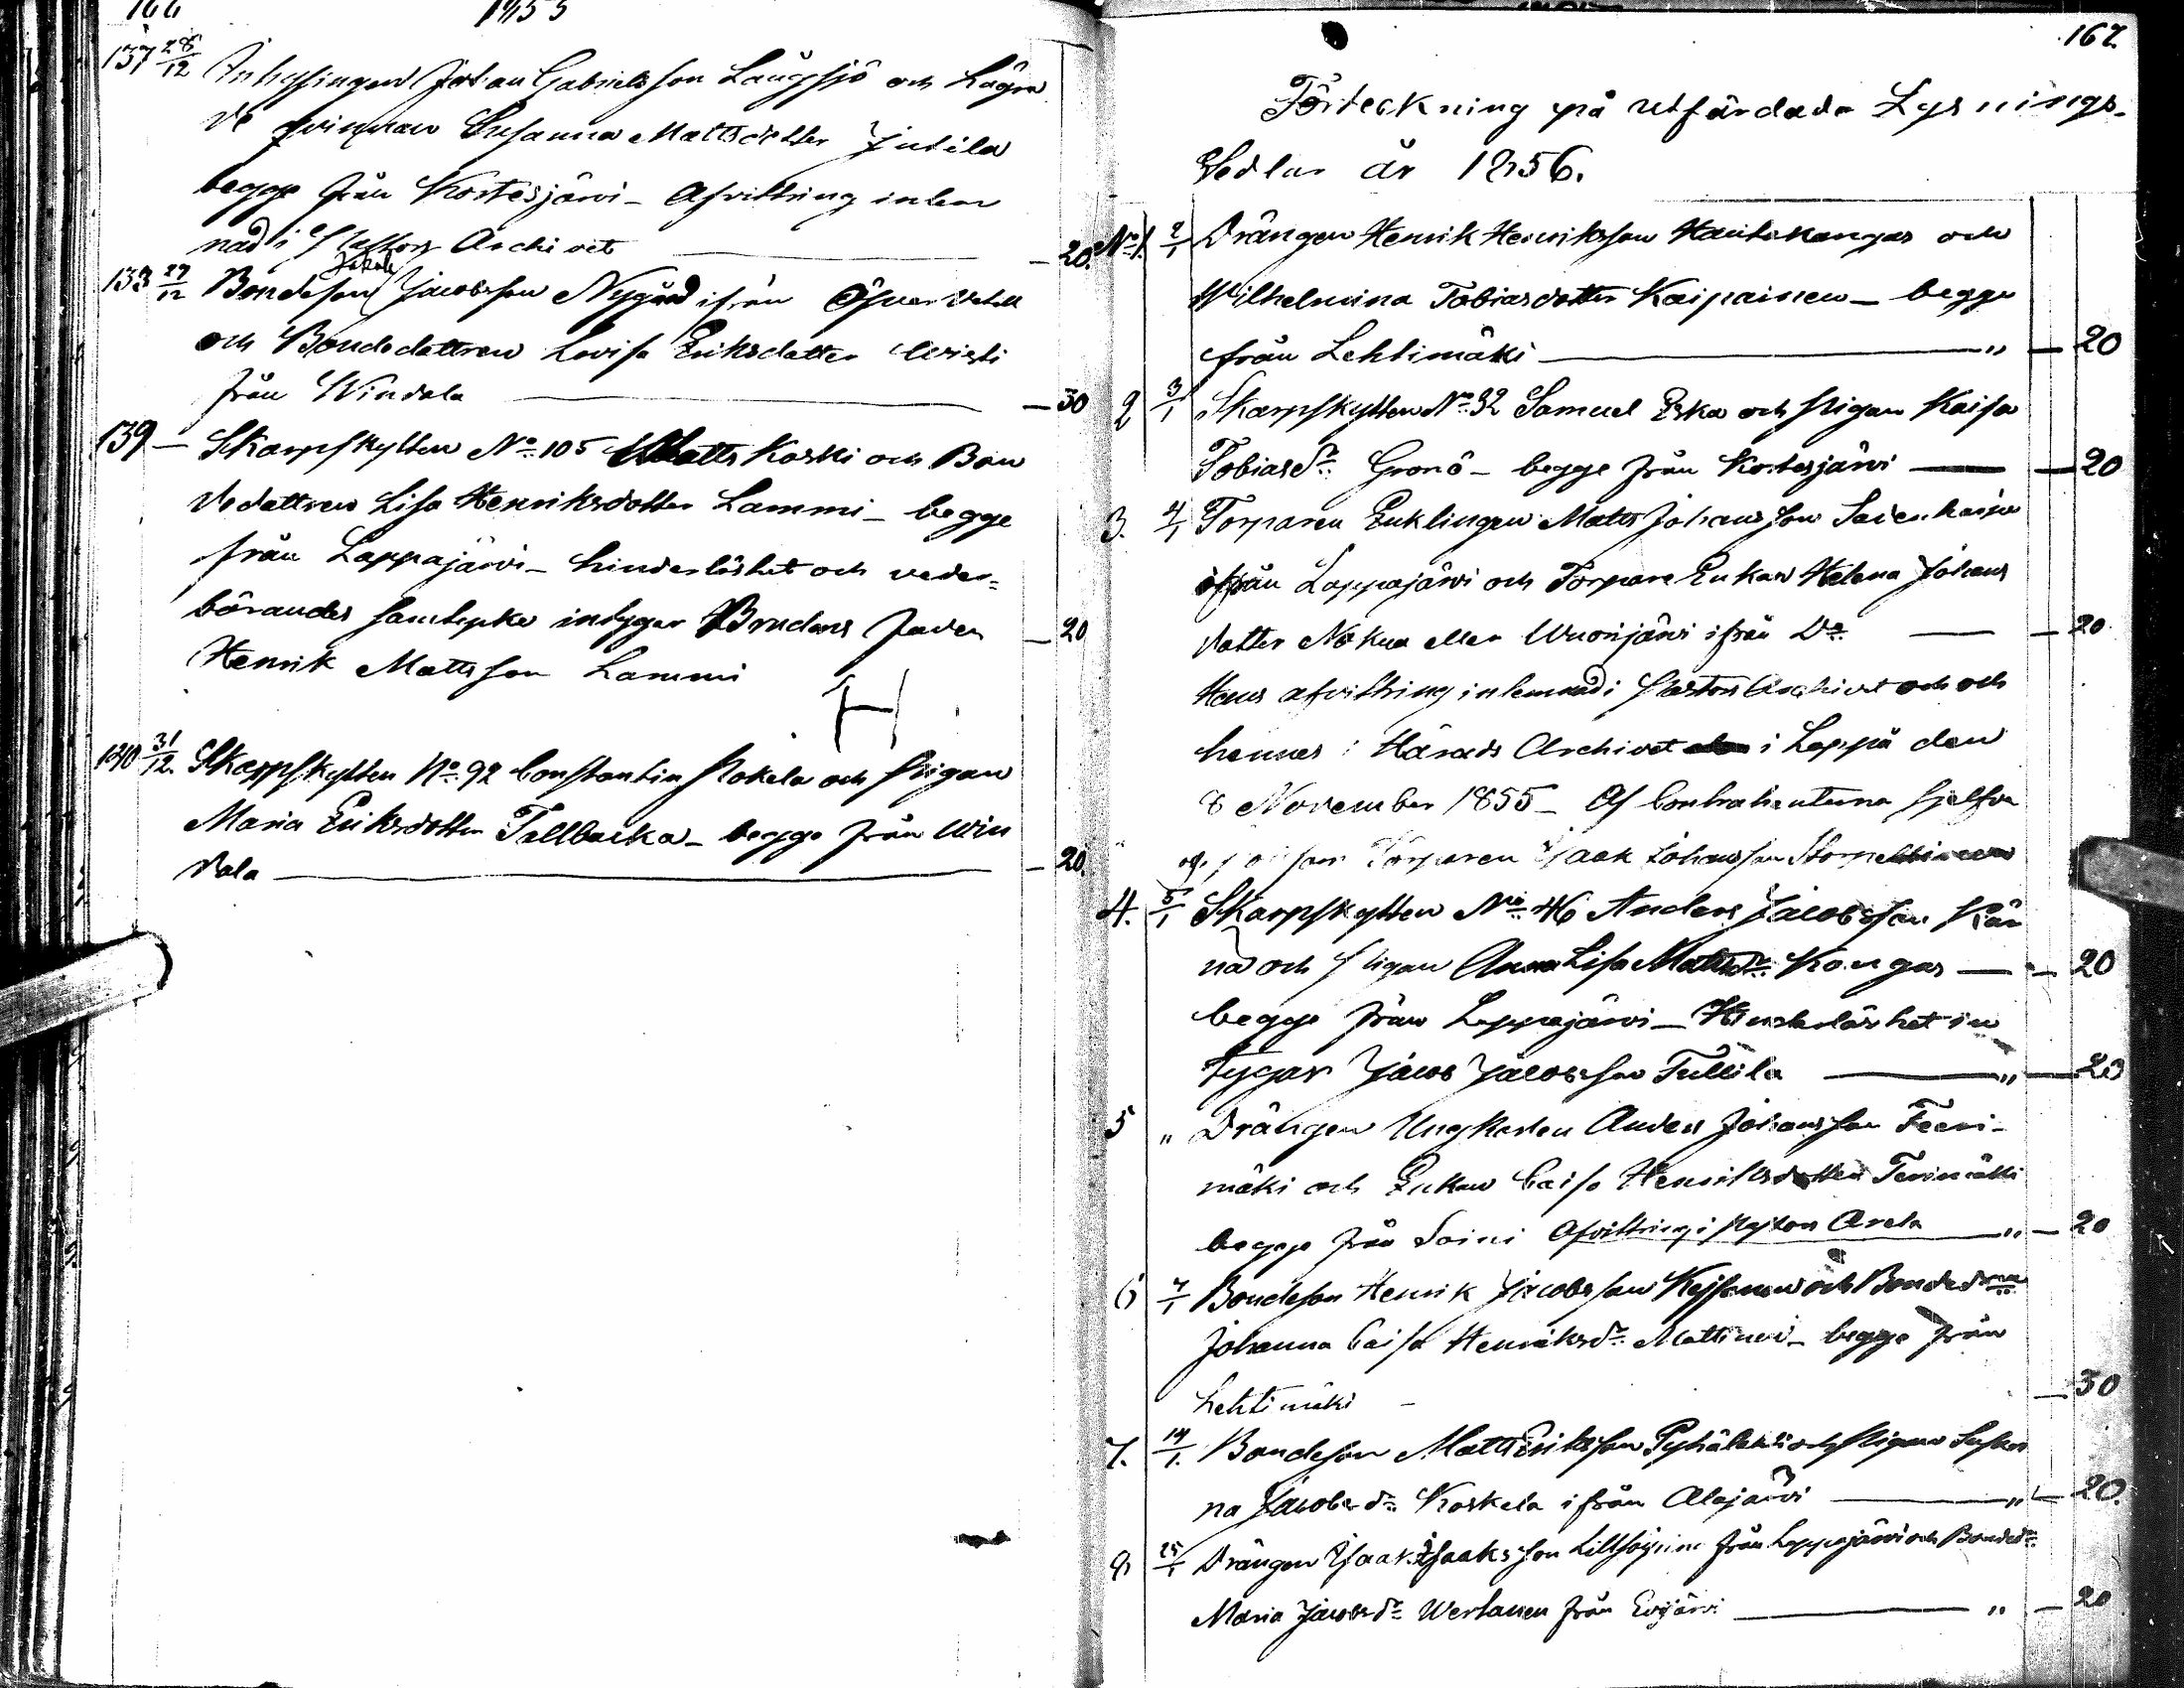 166
1855
137 28/12 Inhysingen Johan Gabrielsson Långsjö och Lägre
de qvinnan Susanna Mattsdotter Jutila
begge från Kortesjärvi - Afvittring inlem
nad i Pastors Archivet — 20.
138 29/12 Bondeson Jakob Jacobsson Nygård ifrån Öfver Vetill
och Bondedottren Lovisa Eriksdotter Wisti
från Windala — 30
139 — Skarpskytten No 105 Matts Koski och Bon
dedottren Lisa Henriksdotter Lammi - begge
från Lappajärvi - hinderlöshet och veder=
börandes samtycke intygar Brudens fader — 20
Henrik Mattsson Lammi
140 31/12. Skarpskytten No 92 Constantin Kokela och Pigan
Maria Eriksdotter Tallbacka - begge från Win
dala — 20.
167
Förteckning på utfärdade Lysnings-
Sedlar år 1856.
No 1. 2/1 Drängen Henrik Henriksson Hautakangas och
Wilhelmina Tobiasdotter Kaipainen - begge
från Lehtimäki — " — 20
2 3/1 Skarpskytten No 32 Samuel Erka och Pigan Kaisa
Tobiasdr Gronö - begge från Kortesjärvi — 20
3. 4/1 Torparen Enklingen Matts Johansson
ifrån Lappajärvi och Torpare Enkan Helena Johans
dotter Nokua eller Wuorijärvi ifrån Do — 20
Hans afvittring inlemnad i Pastors Archivet och och
hennes i Härads Archivet i Lappo den
8 November 1855 - Af Contrahenterna sjelfva
Torparen Isaak Johansson
4. 5/1 Skarpskytten No 46 Anders Jacobsson Rän
nä och Pigan Anna Lisa Mattsdr Kangas — 20
begge från Lappajärvi - Hinderlöshet in
tygar Jacob Jacobsson Tullila — " — 20
5 " Drängen Ungkarlen Anders Johansson Teeri-
mäki och Enkan Caisa Henriksdotter Terimäki
begge från Soini Afvittring i Pastors Arch — " — 20
6 7/1 Bondeson Henrik Jacobsson Keisanen och Bondedrn
Johanna Caisa Henriksdr Mattinen - begge från
Lehtimäki - — 30
7. 14/1. Bondeson Matts Eriksson Pyhälahti och Pigan Susan
na Jacobsdr Koskela ifrån Alajärvi — " — 20.
8 25/1 Drängen Isaak Isaaksson från Lappajärvi och Bondedr
Maria Jacobsdr Wertanen från Evijärvi — " — 20